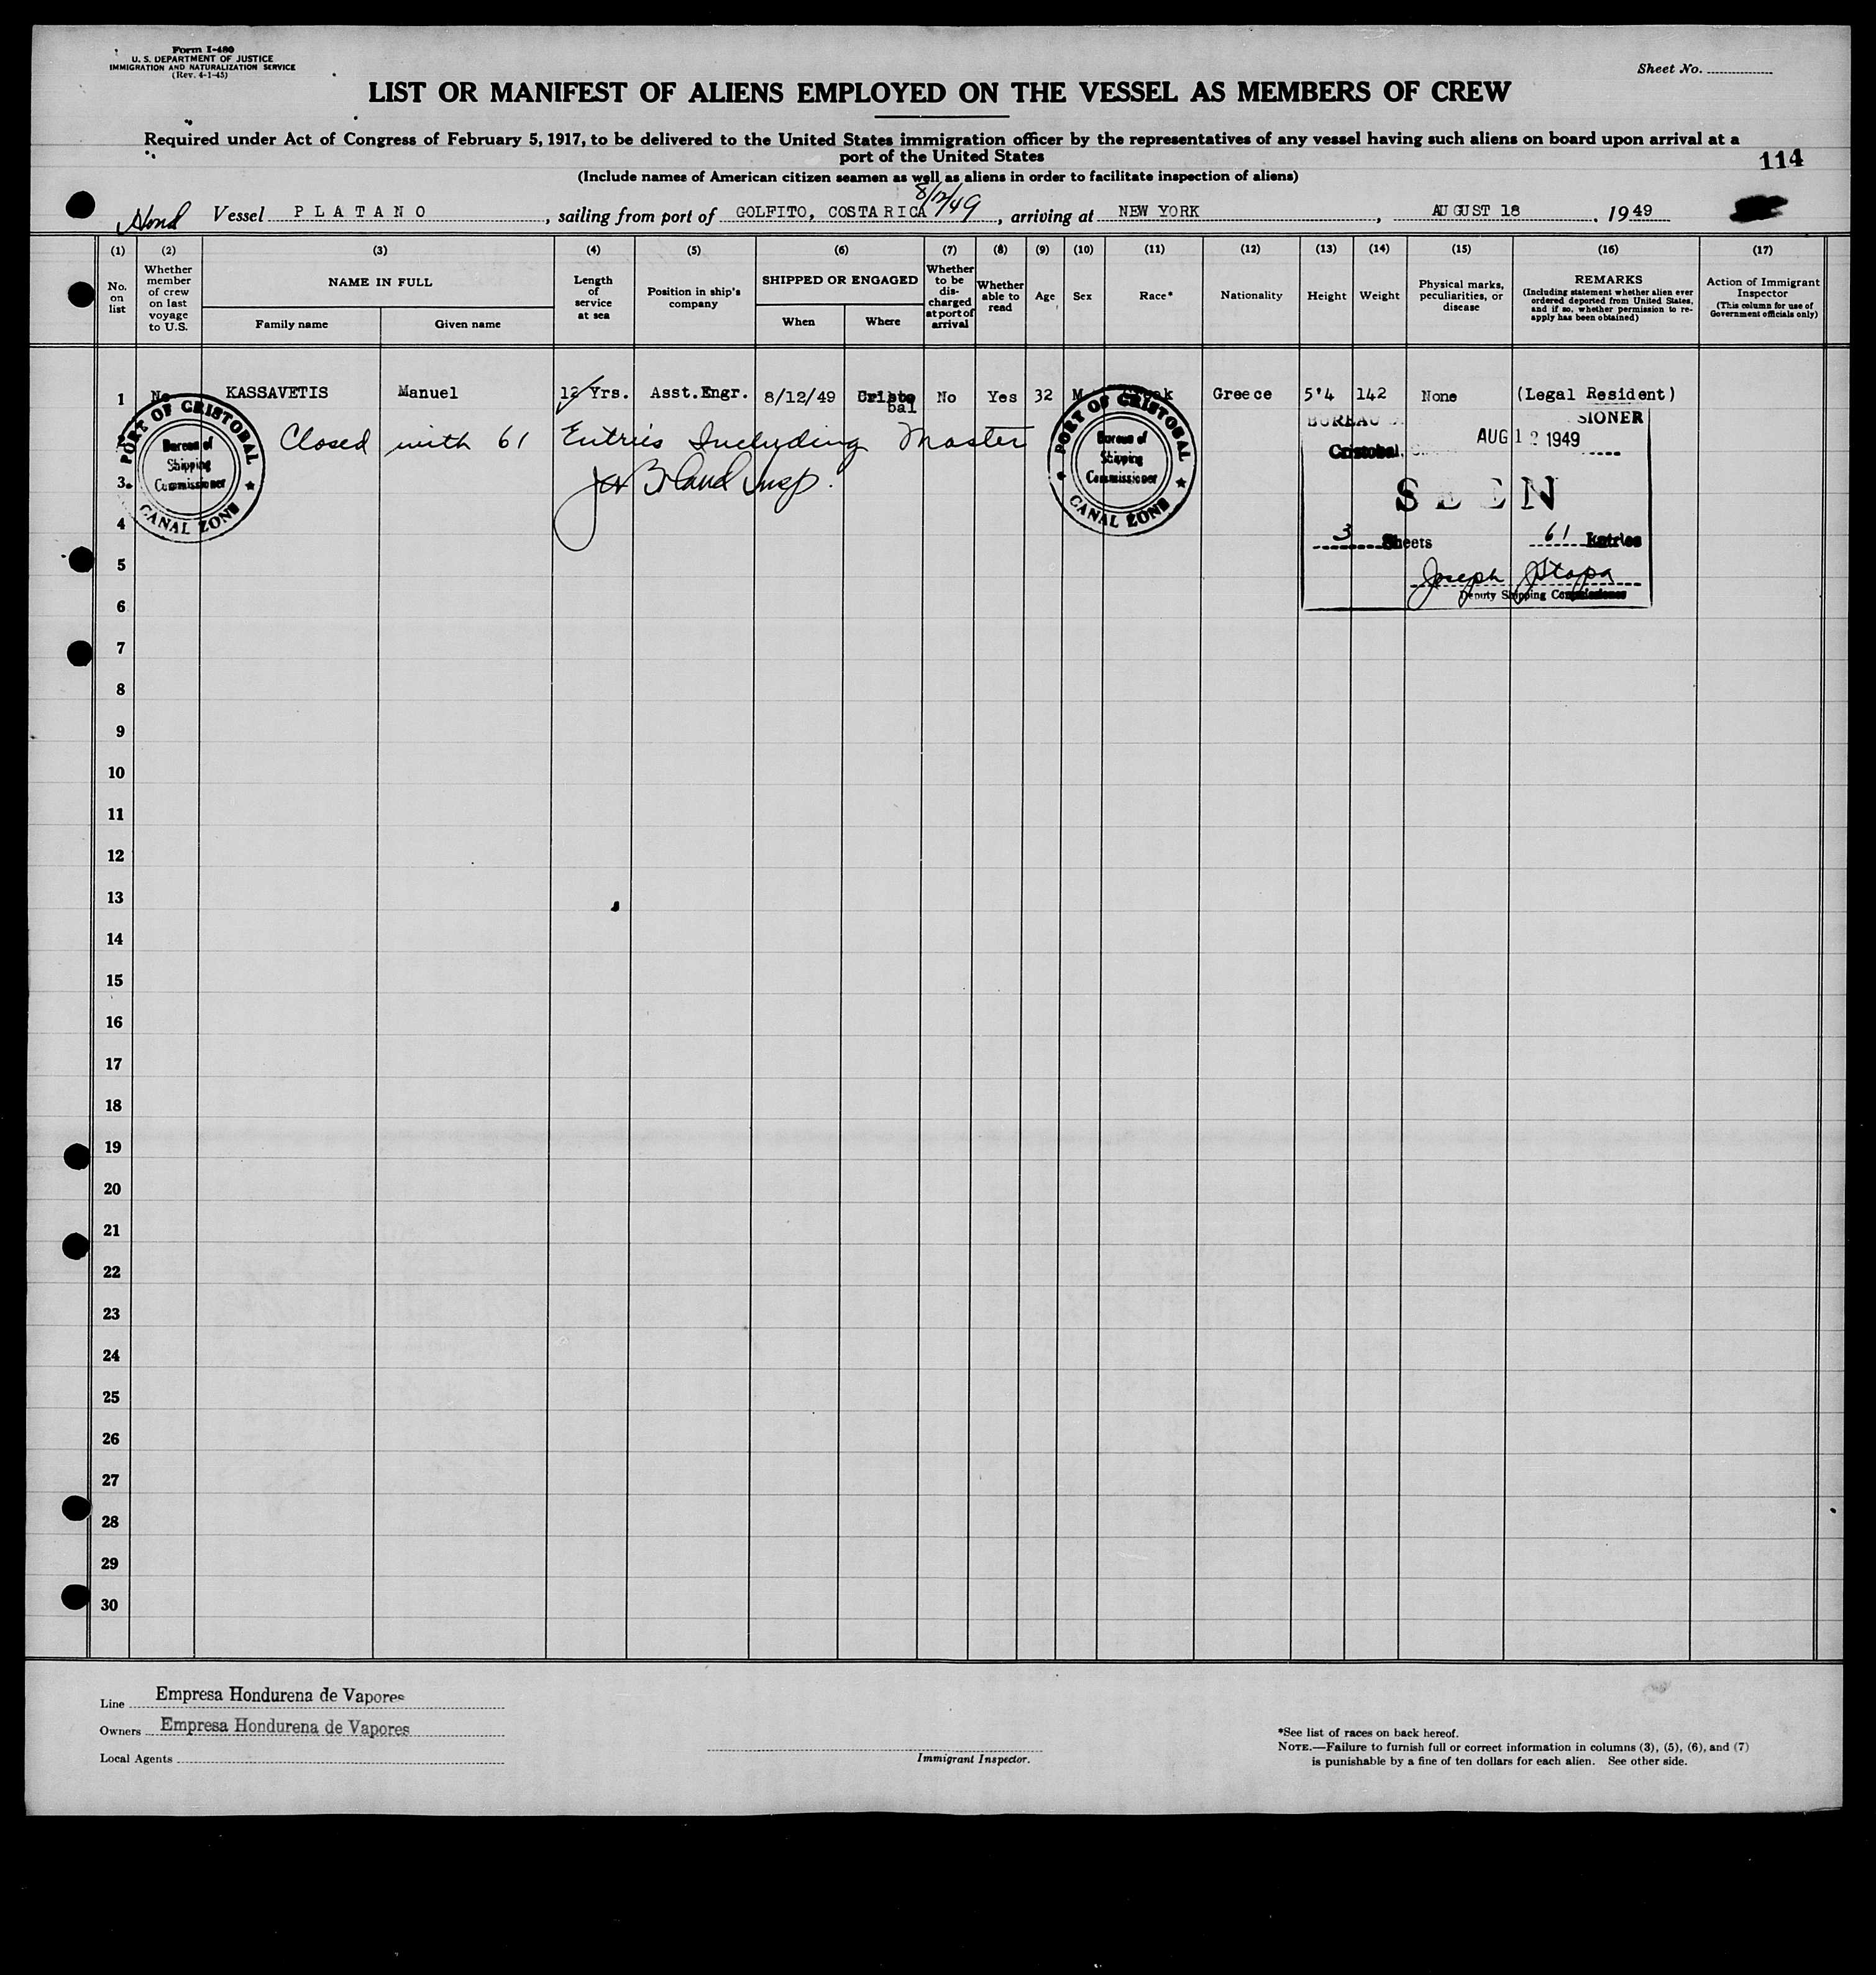 Form I-480
U. S. DEPARTMENT OF JUSTICE
IMMIGRATION AND NATURALIZATION SERVICE
(Rev. 4-1-45)
Sheet No.
LIST OR MANIFEST OF ALIENS EMPLOYED ON THE VESSEL AS MEMBERS OF CREW
Required under Act of Congress of February 5, 1917, to be delivered to the United States immigration officer by the representatives of any vessel having such aliens on board upon arrival at a
port of the United States
114
(Include names of American citizen seamen as well as aliens in order to facilitate inspection of aliens)
8/12/49
Hond Vessel PLATANO, sailing from port of GOLFITO, COSTA RICA, arriving at NEW YORK, AUGUST 18, 1949
(1) (2) (3) (4) (5) (6) (7) (8) (9) (10) (11) (12) (13) (14) (15) (16) (17)
No. on list
Whether member of crew on last voyage to U.S.
NAME IN FULL
Family name
Given name
Length of service at sea
Position in ship's company
SHIPPED OR ENGAGED
When
Where
Whether to be discharged at port of arrival
Whether able to read
Age
Sex
Race*
Nationality
Height
Weight
Physical marks, peculiarities, or disease
REMARKS
(Including statement whether alien ever ordered deported from United States, and if so, whether permission to reapply has been obtained)
Action of Immigrant Inspector
(This column for use of Government officials only)
1 No KASSAVETIS Manuel 12 Yrs. Asst.Engr. 8/12/49 Cristobal No Yes 32 M Greek Greece 5'4 142 None (Legal Resident)
Closed with 61 Entries Including Master
Insp.
PORT OF CRISTOBAL
Bureau of
Shipping
Commissioner
CANAL ZONE
PORT OF CRISTOBAL
Bureau of
Shipping
Commissioner
CANAL ZONE
BUREAU SIONER
AUG 12 1949
Cristobal,
SEEN
3 Sheets 61 Entries
Joseph
Deputy Shipping Commissioner
3
4
5
6
7
8
9
10
11
12
13
14
15
16
17
18
19
20
21
22
23
24
25
26
27
28
29
30
Line Empresa Hondurena de Vapores
Owners Empresa Hondurena de Vapores
Local Agents
Immigrant Inspector.
*See list of races on back hereof.
NOTE.—Failure to furnish full or correct information in columns (3), (5), (6), and (7)
is punishable by a fine of ten dollars for each alien. See other side.